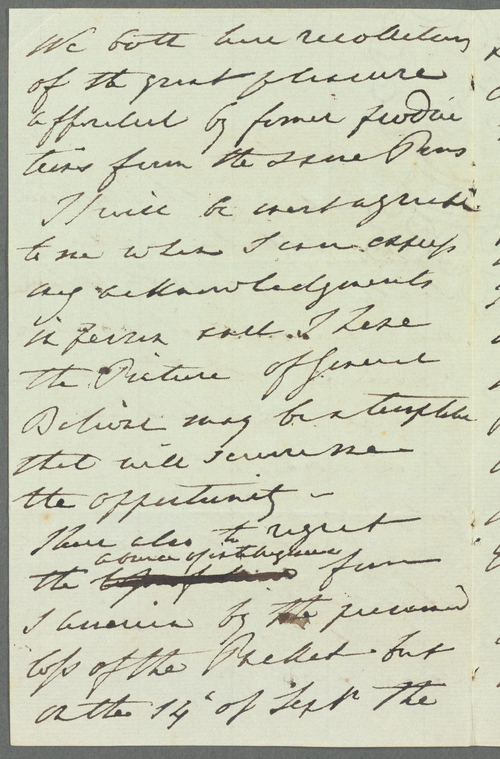 We both have recollections
of the great pleasure
afforded by former produc
tions from the same Pens
It will be most agreeable
to me when I can express
my acknowledgments
in person and I hope
the Picture of General
Bolivar may be a temptation
that will secure me
the opportunity –
I have also to regret
absence of intelligence
the from
S America by the presumed
loss of the Packet but
on the 14th of Septr The